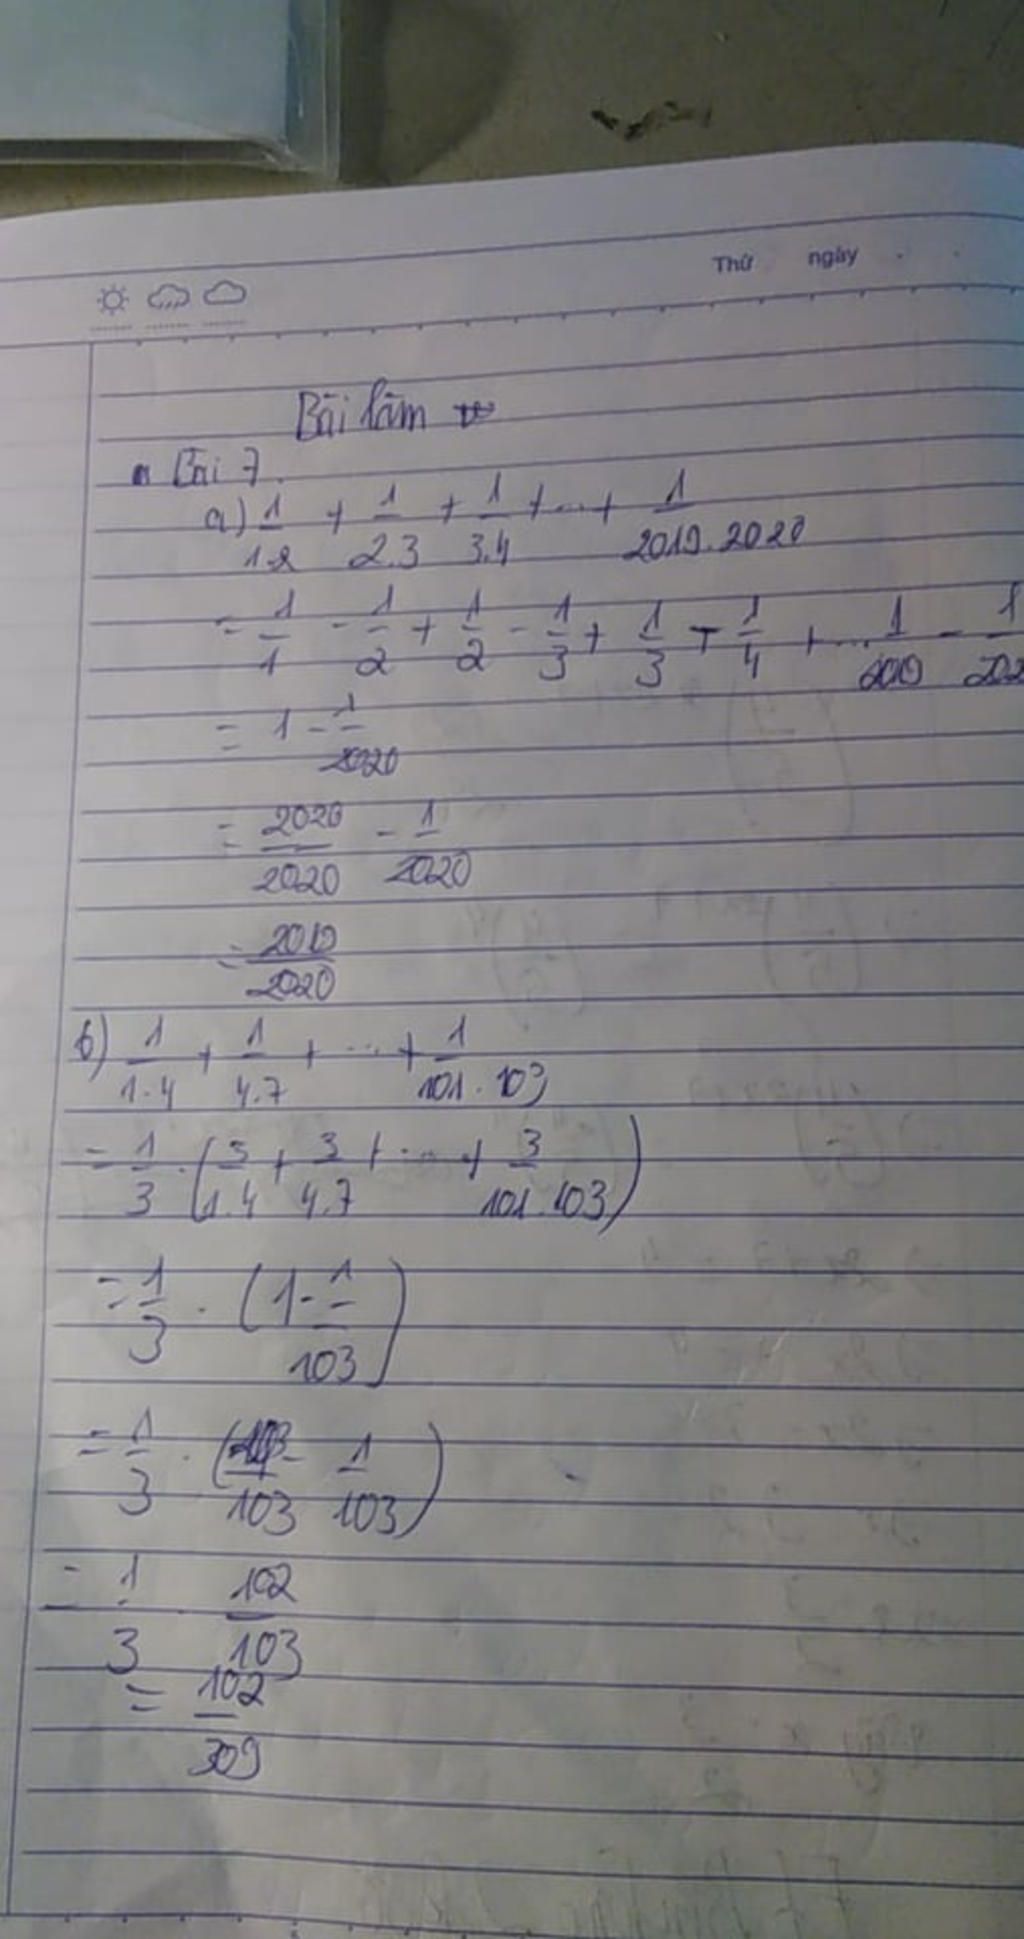 Thứ ngày
Bài làm
Bài 7
a) 1/1.2 + 1/2.3 + 1/3.4 + ... + 1/2019.2020
= 1/1 - 1/2 + 1/2 - 1/3 + 1/3 - 1/4 + ... 1/2019 - 1/202
= 1 - 1/2020
= 2020/2020 - 1/2020
= 2019/2020
b) 1/1.4 + 1/4.7 + ... + 1/101.103
= 1/3 . (3/1.4 + 3/4.7 + ... + 3/101.103)
= 1/3 . (1 - 1/103)
= 1/3 . (103/103 - 1/103)
= 1/3 . 102/103
= 102/309